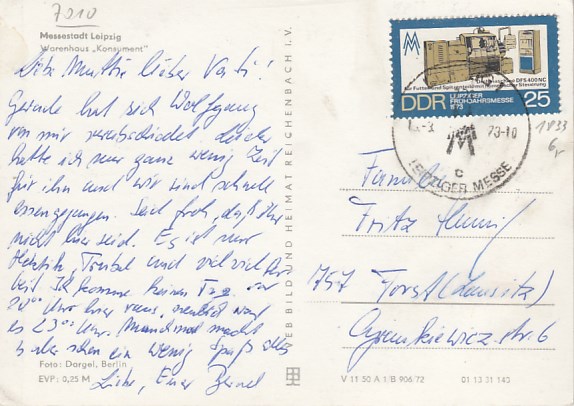 7010
Messestadt Leipzig
Warenhaus „Konsument"
Liebe Mutti lieber Vati!
Gerade hat sich Wolfgang
von mir verabschiedet. Leider
hatte ich nur ganz wenig Zeit
für ihn und wir sind schnell
essengegangen. Seid froh, daß ihr
nicht hier seid. Es ist nur
Hektik, Trubel und viel viel Ar-
beit. Ich komme keinen Tag vor
20°° Uhr hier raus, neulich war
es 23°° Uhr. Manchmal macht
es aber schon ein wenig Spaß
Liebe, Euer Bernd
Foto: Dargel, Berlin
EVP: 0,25 M
VEB BILD UND HEIMAT REICHENBACH I. V.
DFS 400 NC
DDR
LEIPZIGER
FRÜHJAHRSMESSE
1973
25
73-10
C
LEIPZIGER MESSE
1833
6,-
Familie
Fritz
757 Forst (Lausitz)
V 11 50 A 1/B 906/72
01 13 31 143